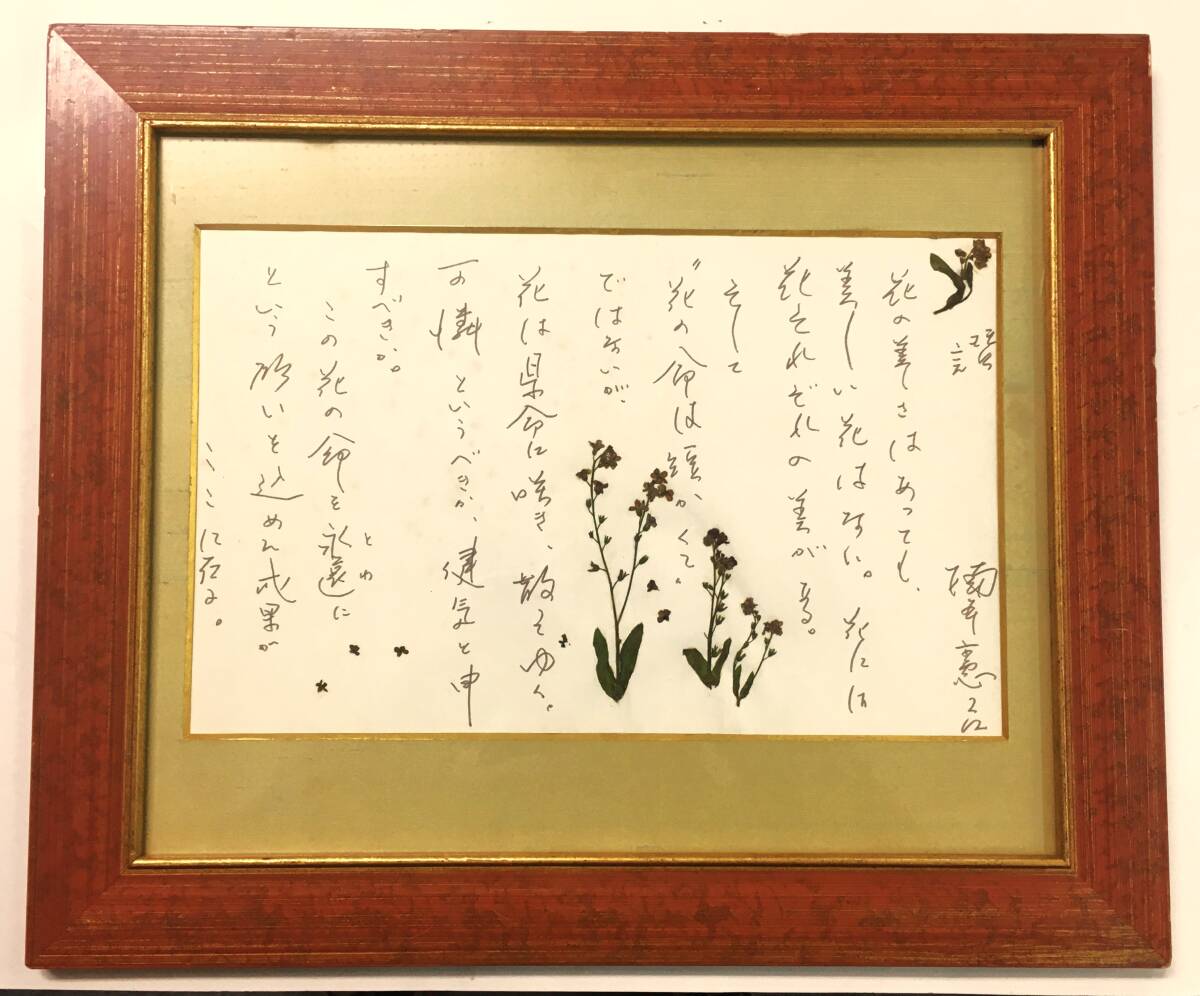 讃
楠本憲吉
花の美しさはあっても、
美しい花はない。花には
花それぞれの美がある。
そして
〝花の命は短かくて〟
ではないが、
花は県命に咲き、散ってゆく。
可憐というべきか、健気と申
すべきか。
この花の命を永遠に
とわ
という願いを込めた成果が
ここに在る。